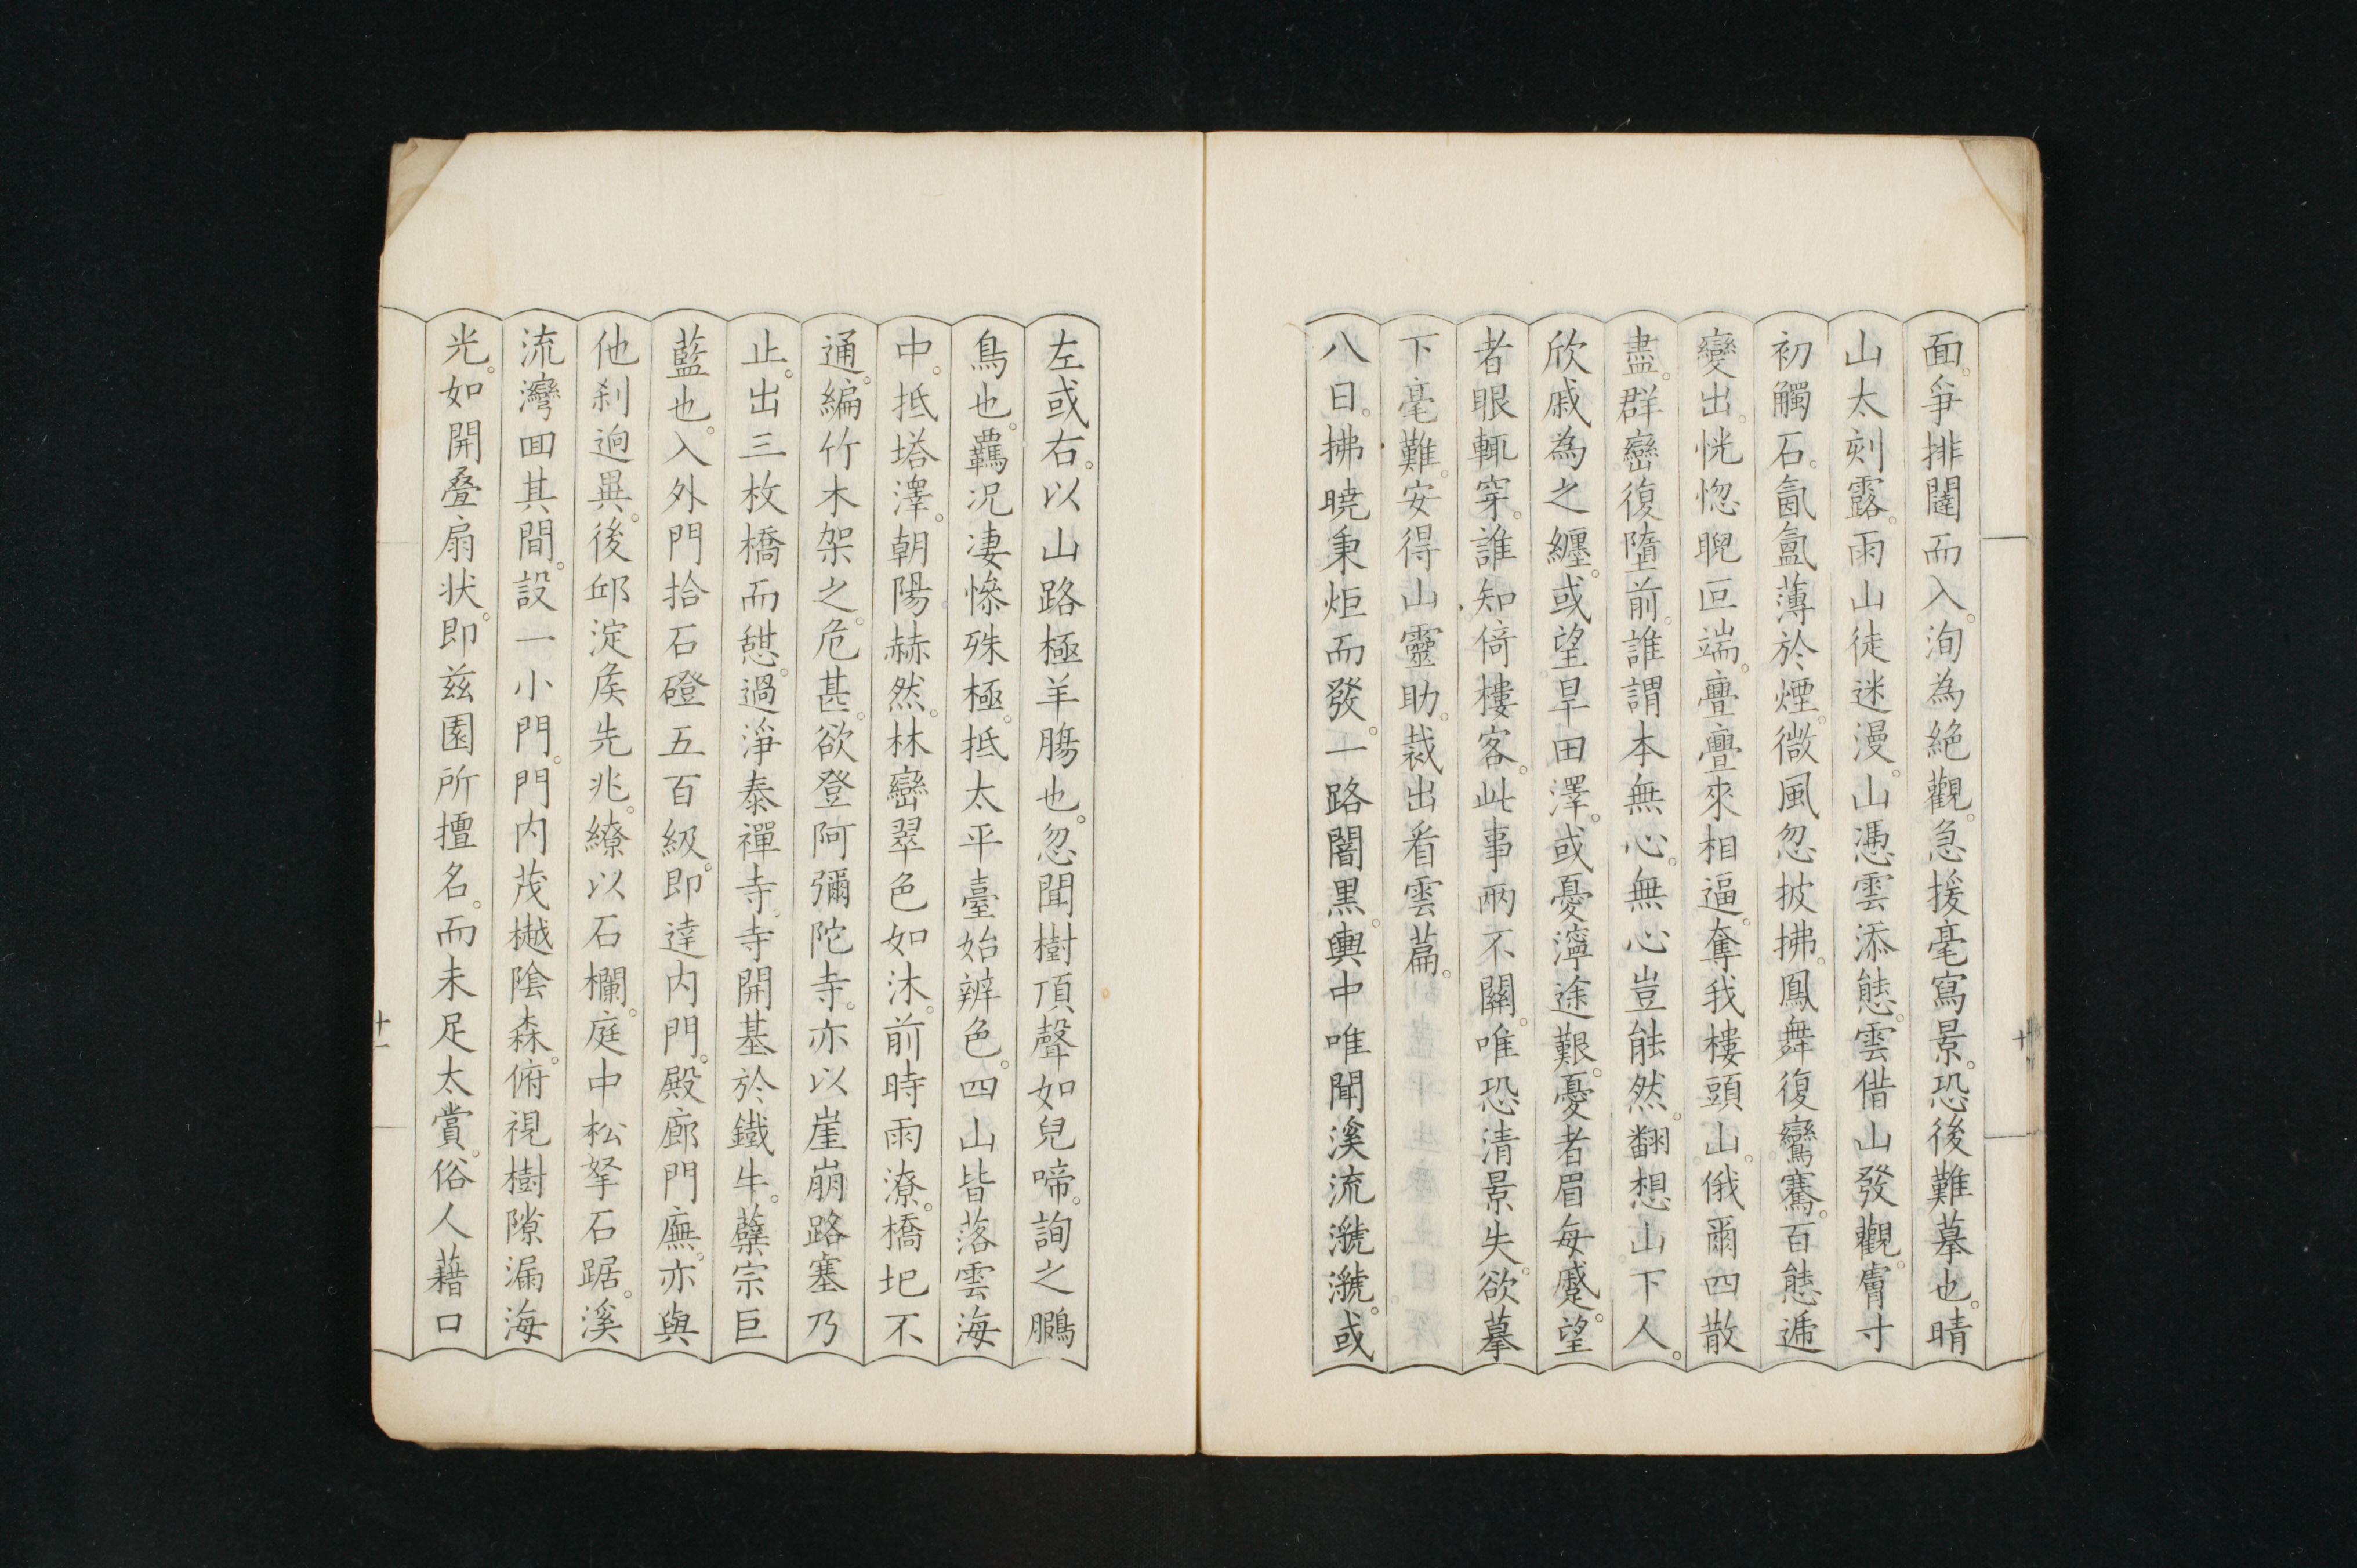 面。爭排闥而入。洵為絕觀。急援毫寫景。恐後難摹也。晴
山太刻露。雨山徒迷漫。山憑雲添態。雲借山發觀。膚寸
初觸石。氤氳薄於煙。微風忽披拂。鳳舞復鸞騫。百態遞
變出。恍惚睨叵端。疊疊來相逼。奪我樓頭山。俄爾四散
盡。群巒復墮前。誰謂本無心。無心豈能然。翻想山下人。
欣戚為之纏。或望旱田澤。或憂濘途艱。憂者眉每蹙。望
者眼輒穿。誰知倚樓客。此事兩不關。唯恐清景失。欲摹
下毫難。安得山靈助。裁出看雲篇。
八日。拂曉秉炬而發。一路闇黑。輿中唯聞溪流㶁㶁。或
十
左或右。以山路極羊膓也。忽聞樹頂聲如兒啼。詢之鵩
鳥也。羈況凄慘殊極。抵太平臺始辨色。四山皆落雲海
中。抵塔澤。朝陽赫然。林巒翠色如沐。前時雨潦。橋圯不
通。編竹木架之。危甚。欲登阿彌陀寺。亦以崖崩路塞乃
止。出三枚橋而憩。過淨泰禪寺。寺開基於鐵牛。蘗宗巨
藍也。入外門拾石磴五百級。即達内門。殿廊門廡。亦與
他刹迥異。後邱淀矦先兆。繚以石欄。庭中松拏石踞。溪
流灣回其間。設一小門。門内茂樾陰森。俯視樹隙漏海
光。如開疊扇状。即兹園所擅名。而未足太賞。俗人藉口
十一